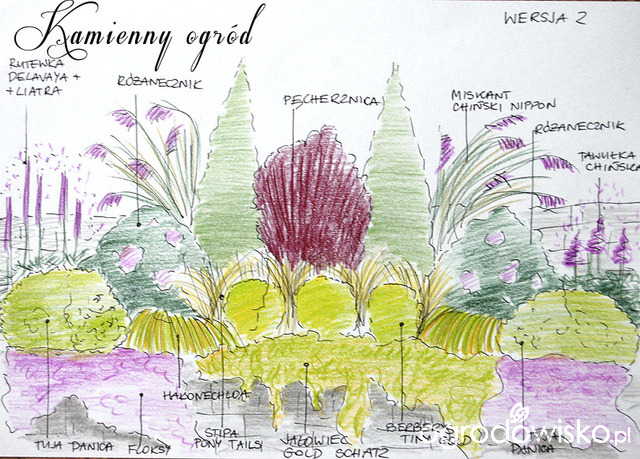 Kamienny ogród
WERSJA 2
RUTEWKA
DELAVAYA +
+ LIATRA
RÓŻANECZNIK
PĘCHERZNICA
MISKANT
CHIŃSKI NIPPON
RÓŻANECZNIK
TAWUŁKA
CHIŃSKA
HAKONECHLOA
TUJA DANICA
FLOKSY
STIPA
PONY TAILS
JAŁOWIEC
GOLD SCHATZ
BERBERYS
TINY GOLD
DANICA
ogrodowisko.pl